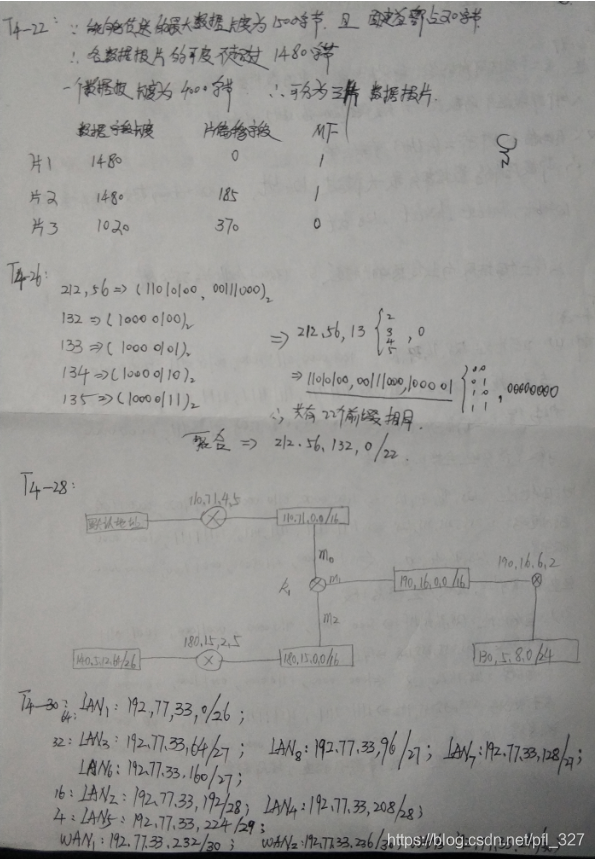 T4-22: ∵ 能够传送的最大数据长度为1500字节. 且 固定首部占20字节
∴ 各数据报片的长度不超过 1480字节
一个数据报长度为4000字节 ∴可分为三 数据报片.
数据字段长度 片偏移字段 MF
片1 1480 0 1
片2 1480 185 1
片3 1020 370 0
T4-26:
212,56 => (11010100, 00111000)₂
132 => (10000100)₂
133 => (10000101)₂
134 => (10000110)₂
135 => (10000111)₂
=> 212,56,13 { 2 3 4 5 , 0
=> 11010100,00111000,100001 { 00 01 10 11 , 00000000
∴ 共有22个前缀相同.
聚合 => 212.56,132,0/22
T4-28:
110,71,4,5
默认地址
110,71,0,0/16
m0
R1
m1
190,16,0,0/16
190,16,6,2
m2
180,15,2,5
180,15,0,0/16
130,5,8,0/24
T4-30:
64: LAN1: 192,77,33,0/26;
32: LAN3: 192,77.33,64/27; LAN8: 192.77.33,96/27; LAN7: 192.77.33,128/27;
LAN6: 192.77.33,160/27;
16: LAN2: 192,77.33,192/28; LAN4: 192.77.33,208/28;
4: LAN5: 192,77.33,224/29;
WAN1: 192.77.33,232/30; WAN2: 192.77.33,236/30
https://blog.csdn.net/pfl_327